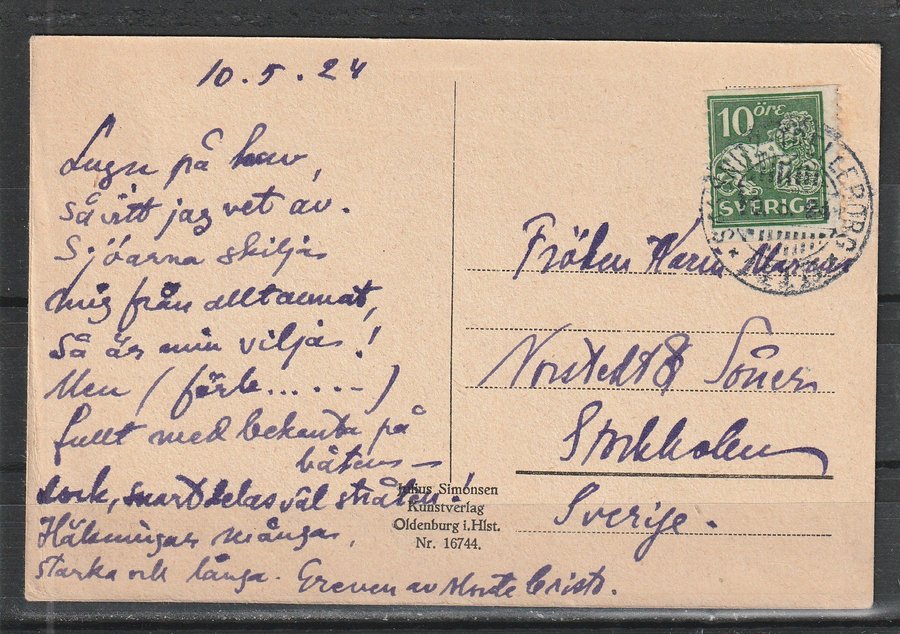 10.5.24
Lugn på hav,
så vitt jag vet av.
Sjöarna skilja
mig från allt annat,
Så är min vilja!
Men (förb......)
fullt med bekanta på
båten –
dock, snart delas väl stråten!
Hälsningar många,
starka och långa. Greven av Monte Cristo.
10 ÖRE
SVERIGE
TRÄLLEBORG
Fröken Karin
Norstedt & Söner
Stockholm
Sverige.
Julius Simonsen
Kunstverlag
Oldenburg i. Hlst.
Nr. 16744.